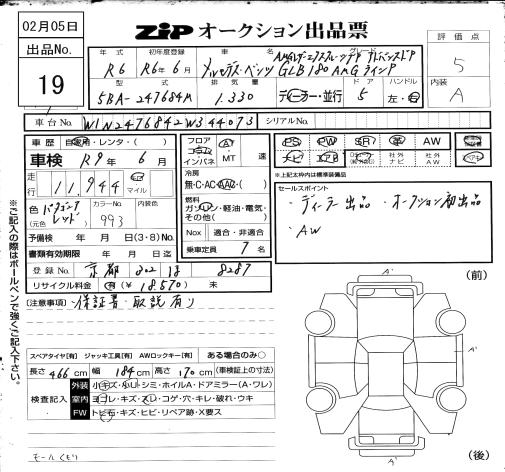 02月05日
ZIP オークション出品票
出品No.
19
年式 初年度登録 車名 グレード
R6 R6年6月 メルセデス・ベンツ GLB180 AMGラインP
型式 排気量 ドア ハンドル
5BA-247684M 1.330 ディーラー・並行 5 左・右
評価点
5
内装
A
車台No. W1N2476842W344073 シリアルNo.
車歴 自家用・レンタ・( )
車検 R9年 6月
走行 11,944 km マイル
色 パタゴニアレッド (元色 ) カラーNo. 993 内装色
予備検 年 月 日(3・8)No.
書類有効期限 年 月 日迄
登録No. 京都 302 は 8287
リサイクル料金 有(¥18,570) 未
フロア コラム インパネ AT MT 速
冷房 無・C・AC・AAC・( )
燃料 ガソリン・軽油・電気・その他( )
Nox 適合・非適合
乗車定員 7 名
PS PW SR AW
ナビ エアB 社外ナビ 社外AW
※上記太枠内は標準装備品
セールスポイント
・ディーラー出品 ・オークション初出品
・AW
[注意事項] 保証書・取説有り
※ご記入の際はボールペンで強くご記入下さい。
スペアタイヤ[有] ジャッキ工具[有] AWロックキー[有] ある場合のみ○
長さ 466 cm 幅 184 cm 高さ 170 cm (車検証上の寸法)
検査記入
外装 小キズ・小凹・シミ・ホイルA・ドアミラー(A・ワレ)
室内 ヨゴレ・キズ・スレ・コゲ・穴・キレ・破れ・ウキ
FW トビ石・キズ・ヒビ・リペア跡・X要ス
モールくもり
(前)
A'
A'
(後)